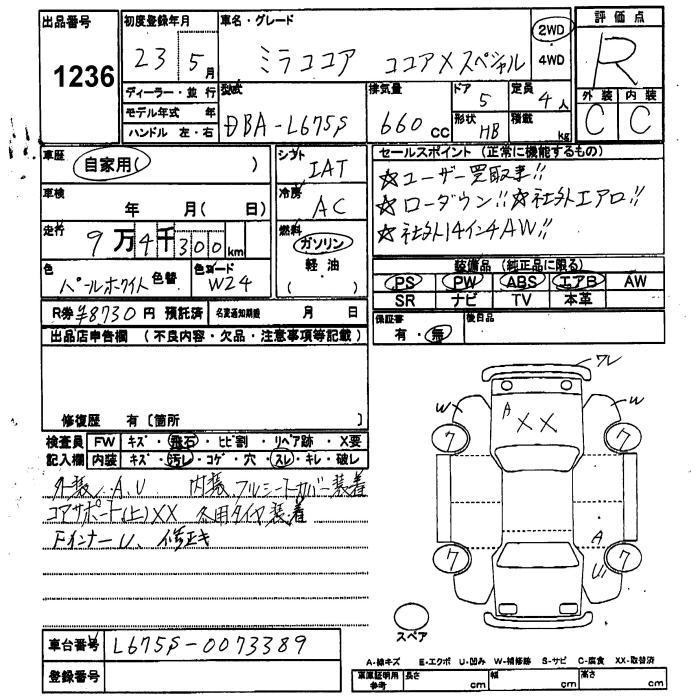 出品番号 1236
初度登録年月 23 5月
車名・グレード
ミラココア ココアXスペシャル
2WD
4WD
評価点
R
外装 内装
C C
ディーラー・並行
モデル年式 年
ハンドル 左・右
型式
DBA-L675S
排気量
660cc
ドア 5
形状 HB
定員 4人
積載 kg
車歴 自家用( )
車検 年 月( 日)
走行 9万4千300km
色 パールホワイト 色替
色コード W24
シフト IAT
冷房 AC
燃料 ガソリン
軽・油
セールスポイント(正常に機能するもの)
☆ユーザー買取車!!
☆ローダウン!!☆社外エアロ!!
☆社外14インチAW!!
装備品(純正品に限る)
PS PW ABS エアB AW
SR ナビ TV 本革
保証書 有・無
後日品
R券 ¥8730円 預託済 名義変更期限 月 日
出品店申告欄(不良内容・欠品・注意事項等記載)
修復歴 有〔箇所 〕
検査員 FW キズ・飛石・ヒビ割・リペア跡・X要
記入欄 内装 キズ・汚レ・コゲ・穴・スレ・キレ・破レ
外装、A、U 内装、フルシートカバー装着
コアサポート(上)XX 冬用タイヤ装着
Fインナー U、修正キ
ワレ
W W
A XX
7 7
7 7
A
U
スペア
車台番号 L675S-0073389
登録番号
A-線キズ E-エクボ U-凹み W-補修跡 S-サビ C-腐食 XX-取替済
車庫証明用参考 長さ cm 幅 cm 高さ cm